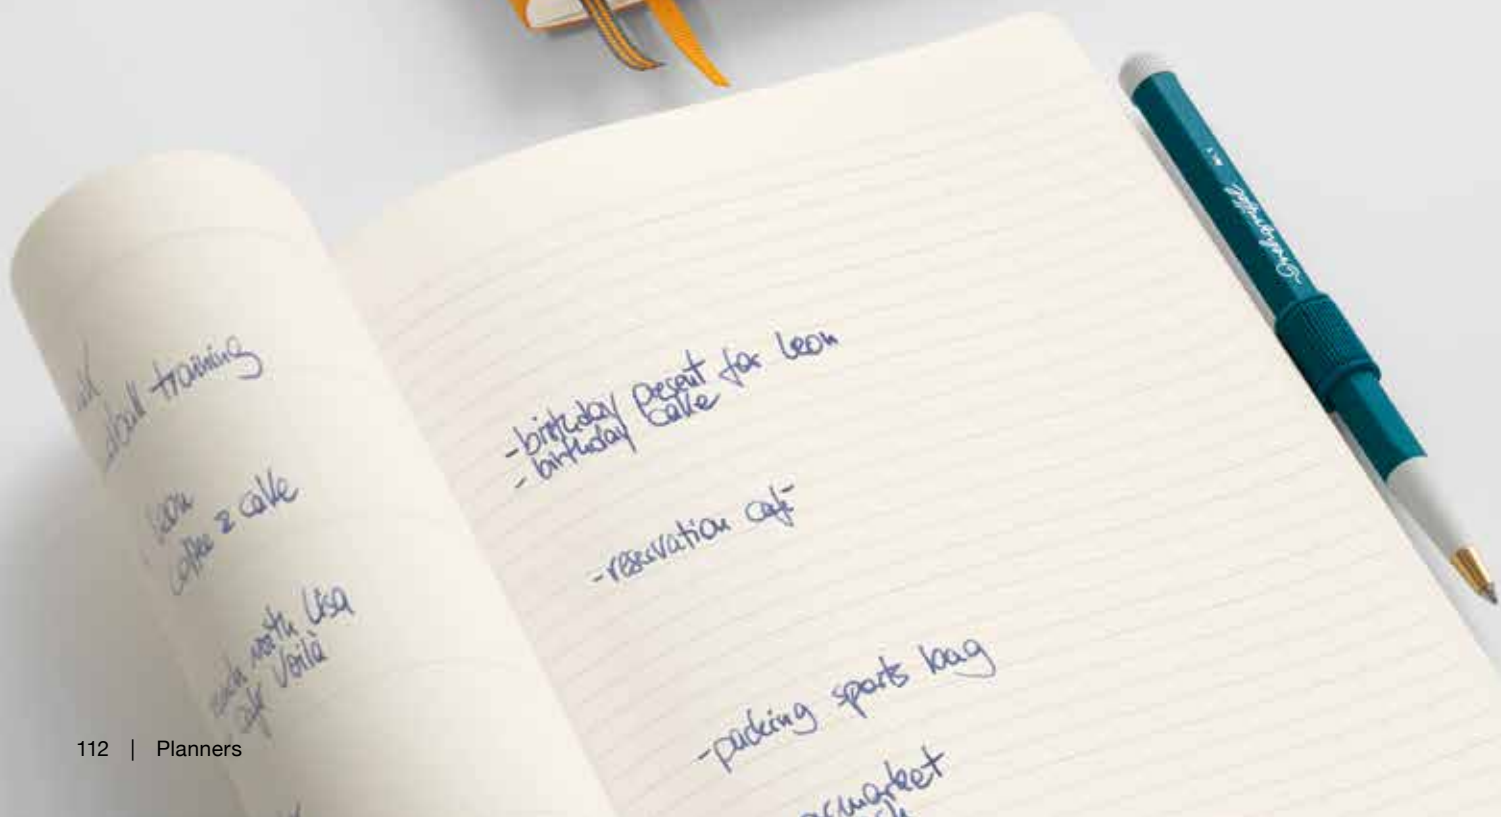 training
Leon
coffee & cake
with Lisa
café Voilà
-birthday present for Leon
-birthday cake
-reservation café
-packing sports bag
Drehgriffel
Nr. 1
112 | Planners